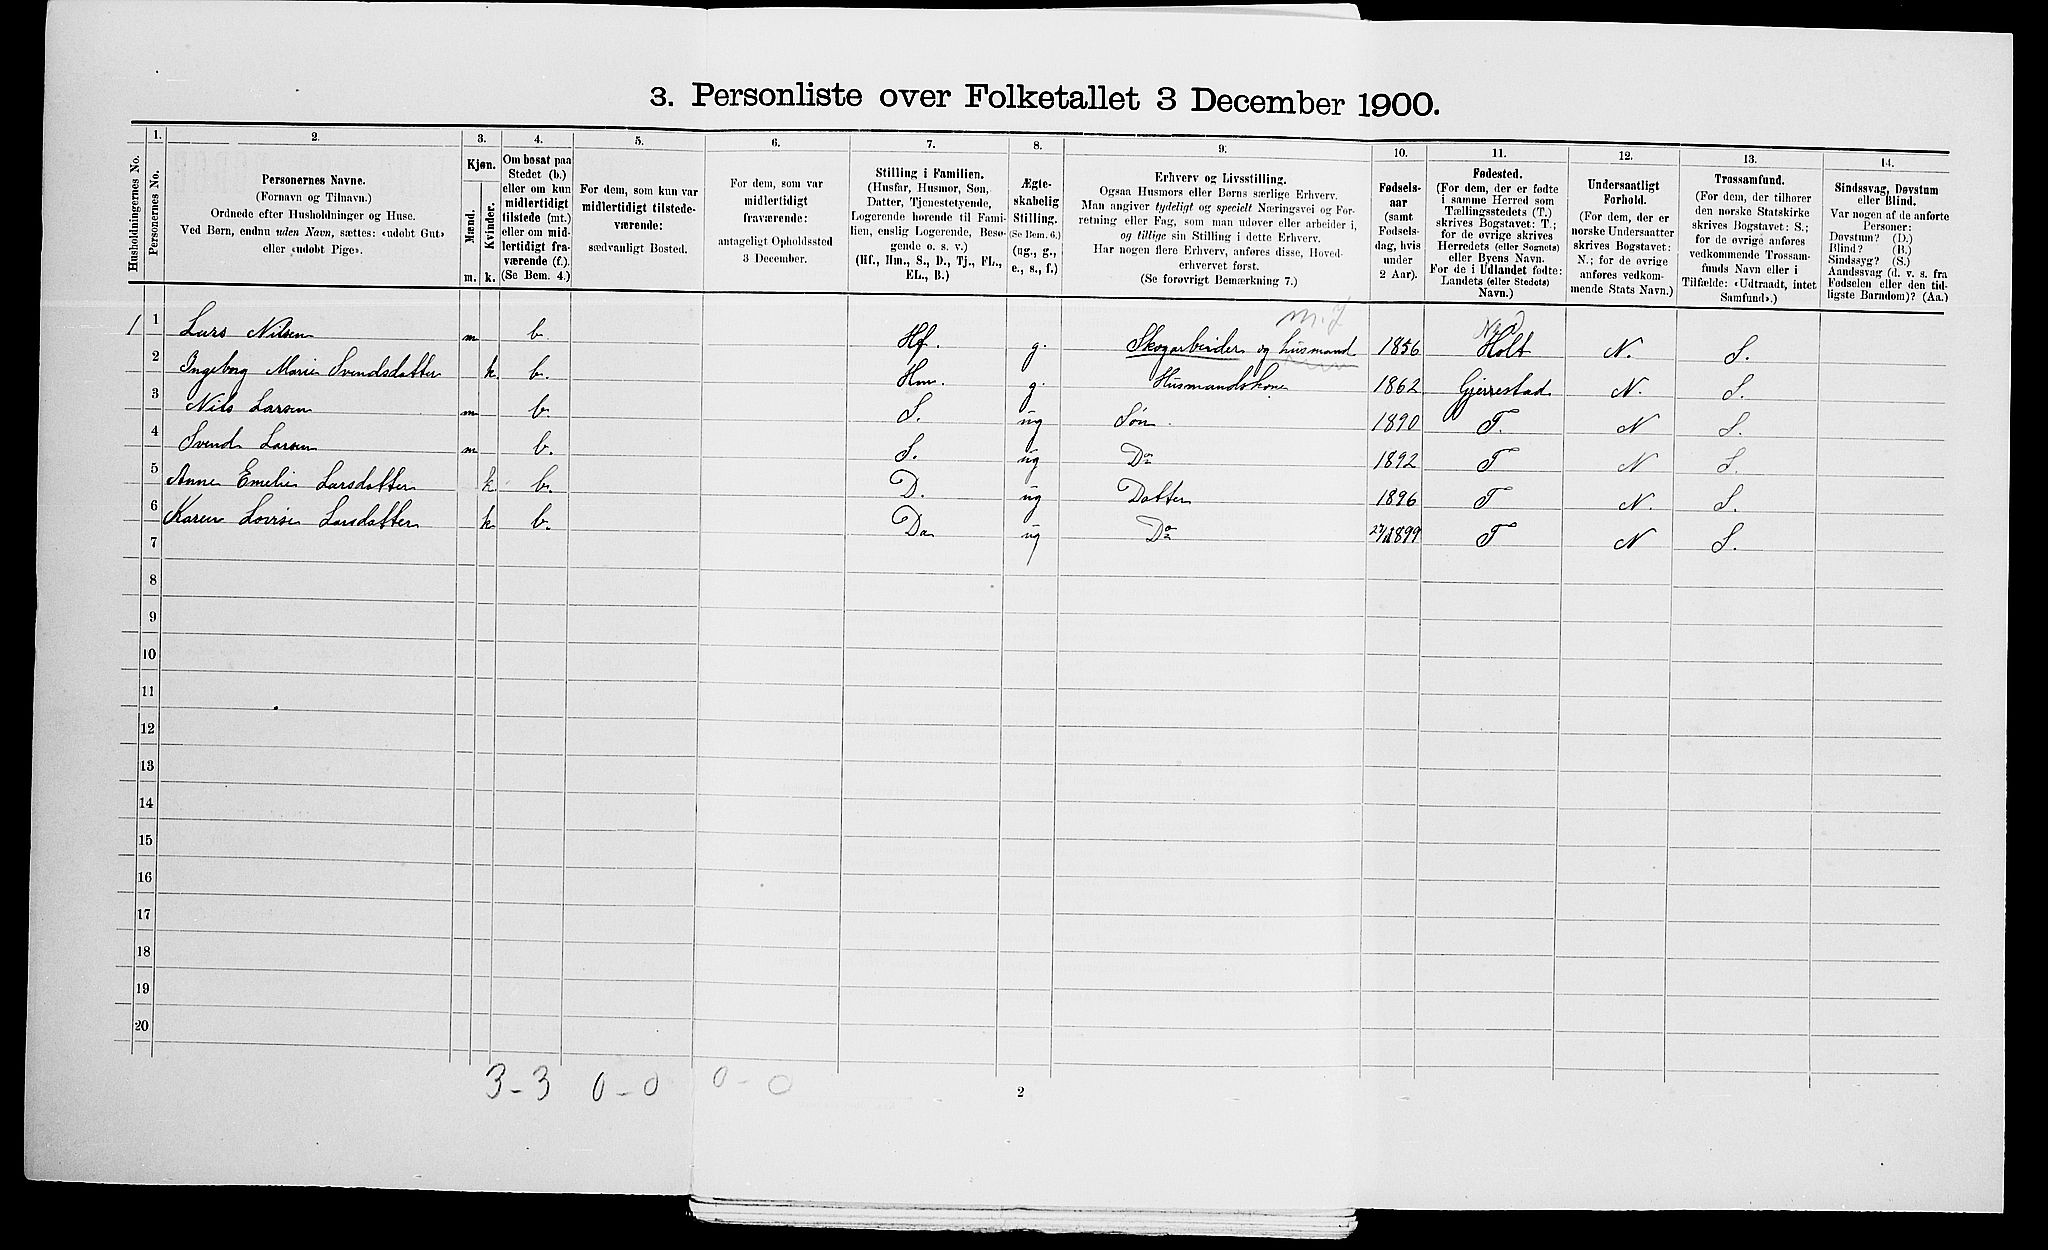 3. Personliste over Folketallet 3 December 1900.
1. 2. 3. 4. 5. 6. 7. 8. 9. 10. 11. 12. 13. 14.
Husholdningernes No.
Personernes No.
Personernes Navne.
(Fornavn og Tilnavn.)
Ordnede efter Husholdninger og Huse.
Ved Børn, endnu uden Navn, sættes: «udøbt Gut»
eller «udøbt Pige».
Kjøn.
Mænd.
Kvinder.
m. k.
Om bosat paa
Stedet (b.)
eller om kun
midlertidigt
tilstede (mt.)
eller om mid-
lertidigt fra-
værende (f.).
(Se Bem. 4.)
For dem, som kun var
midlertidigt tilstede-
værende:
sædvanligt Bosted.
For dem, som var
midlertidigt
fraværende:
antageligt Opholdssted
3 December.
Stilling i Familien.
(Husfar, Husmor, Søn,
Datter, Tjenestetyende,
Logerende hørende til Fami-
lien, enslig Logerende, Besø-
gende o. s. v.)
(Hf., Hm., S., D., Tj., FL.,
EL., B.)
Ægte-
skabelig
Stilling.
(Se Bem. 6.)
(ug., g.,
e., s., f.)
Erhverv og Livsstilling.
Ogsaa Husmors eller Børns særlige Erhverv.
Man angiver tydeligt og specielt Næringsvei og For-
retning eller Fag, som man udøver eller arbeider i,
og tillige sin Stilling i dette Erhverv.
Har nogen flere Erhverv, anføres disse, Hoved-
erhvervet først.
(Se forøvrigt Bemærkning 7.)
Fødsels-
aar
(samt
Fødsels-
dag, hvis
under
2 Aar).
Fødested.
(For dem, der er fødte
i samme Herred som
Tællingsstedets (T.)
skrives Bogstavet: T.;
for de øvrige skrives
Herredets (eller Sognets)
eller Byens Navn.
For de i Udlandet fødte:
Landets (eller Stedets)
Navn.)
Undersaatligt
Forhold.
(For dem, der er
norske Undersaatter
skrives Bogstavet:
N.; for de øvrige
anføres vedkom-
mende Stats Navn.)
Trossamfund.
(For dem, der tilhører
den norske Statskirke
skrives Bogstavet: S.;
for de øvrige anføres
vedkommende Trossam-
funds Navn eller i
Tilfælde: «Udtraadt, intet
Samfund».)
Sindssvag, Døvstum
eller Blind.
Var nogen af de anførte
Personer:
Døvstum? (D.)
Blind? (B.)
Sindssyg? (S.)
Aandssvag (d. v. s. fra
Fødselen eller den tid-
ligste Barndom)? (Aa.)
m. J
1 1 Lars Nilsen m b. Hf. g. Skogarbeider og husmand 1856 Holt N. S.
2 Ingeborg Marie Svendsdatter k. b. Hm. g. Husmandskone 1862 Gjerrestad N. S.
3 Nils Larsen m b. S. ug Søn. 1890 T. N S.
4 Svend Larsen m b. S. ug Do 1892 T N S.
5 Anne Emelie Larsdatter k b. D. ug Datter 1896 T N. S.
6 Karen Lovise Larsdatter k b. Do ug Do 1899 T N S.
7
8
9
10
11
12
13
14
15
16
17
18
19
20
3-3 0-0 0-0
2